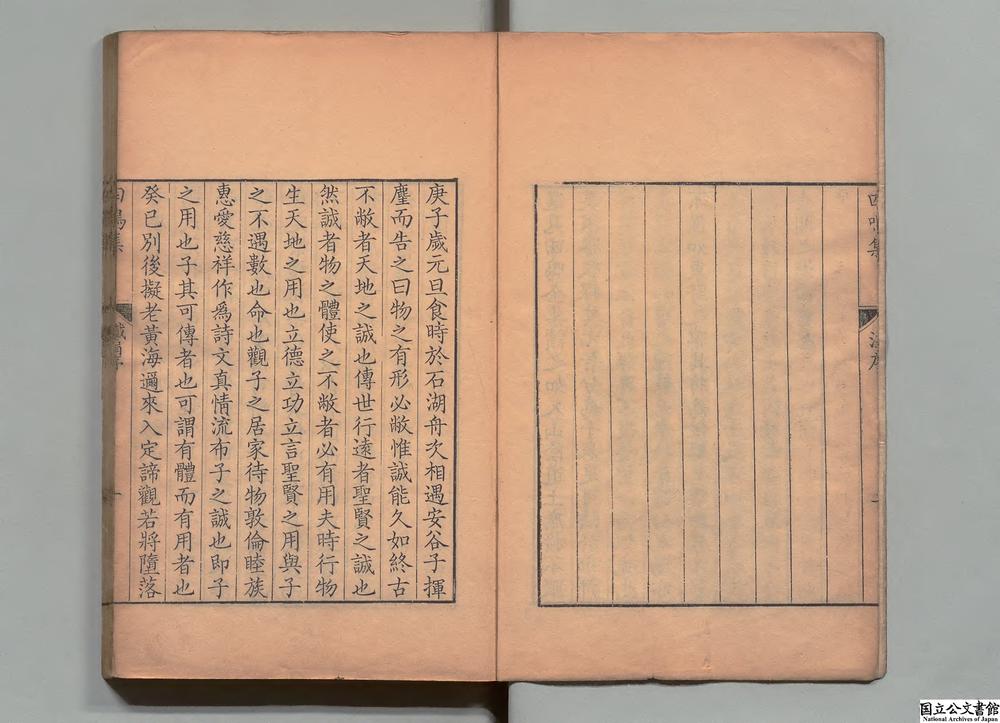 庚子歲元旦食時於石湖舟次相遇安谷子揮
麈而告之曰物之有形必敝惟誠能久如終古
不敝者天地之誠也傳世行遠者聖賢之誠也
然誠者物之體使之不敝者必有用夫時行物
生天地之用也立德立功立言聖賢之用與子
之不遇數也命也觀子之居家待物敦倫睦族
惠愛慈祥作為詩文真情流布子之誠也即子
之用也子其可傳者也可謂有體而有用者也
癸巳別後擬老黃海邇來入定諦觀若將墮落
国立公文書館
National Archives of Japan